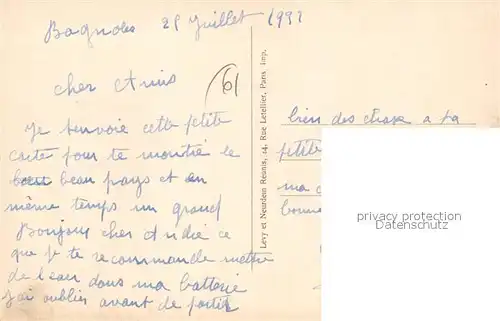 Bagnoles 25 Juillet 1932
61
cher Amis
Je t'envoie cette petite
carte pour te montré le
beau pays et en
même temps un grand
Bonjour cher André ce
que je te recommande mettre
de l'eau dans ma batterie
j'ai oublier avant de partir
Levy et Neurdein Reunis, 44, Rue Letellier, Paris Imp.
bien des chose a ta
petite
ma
bonne
privacy protection
Datenschutz